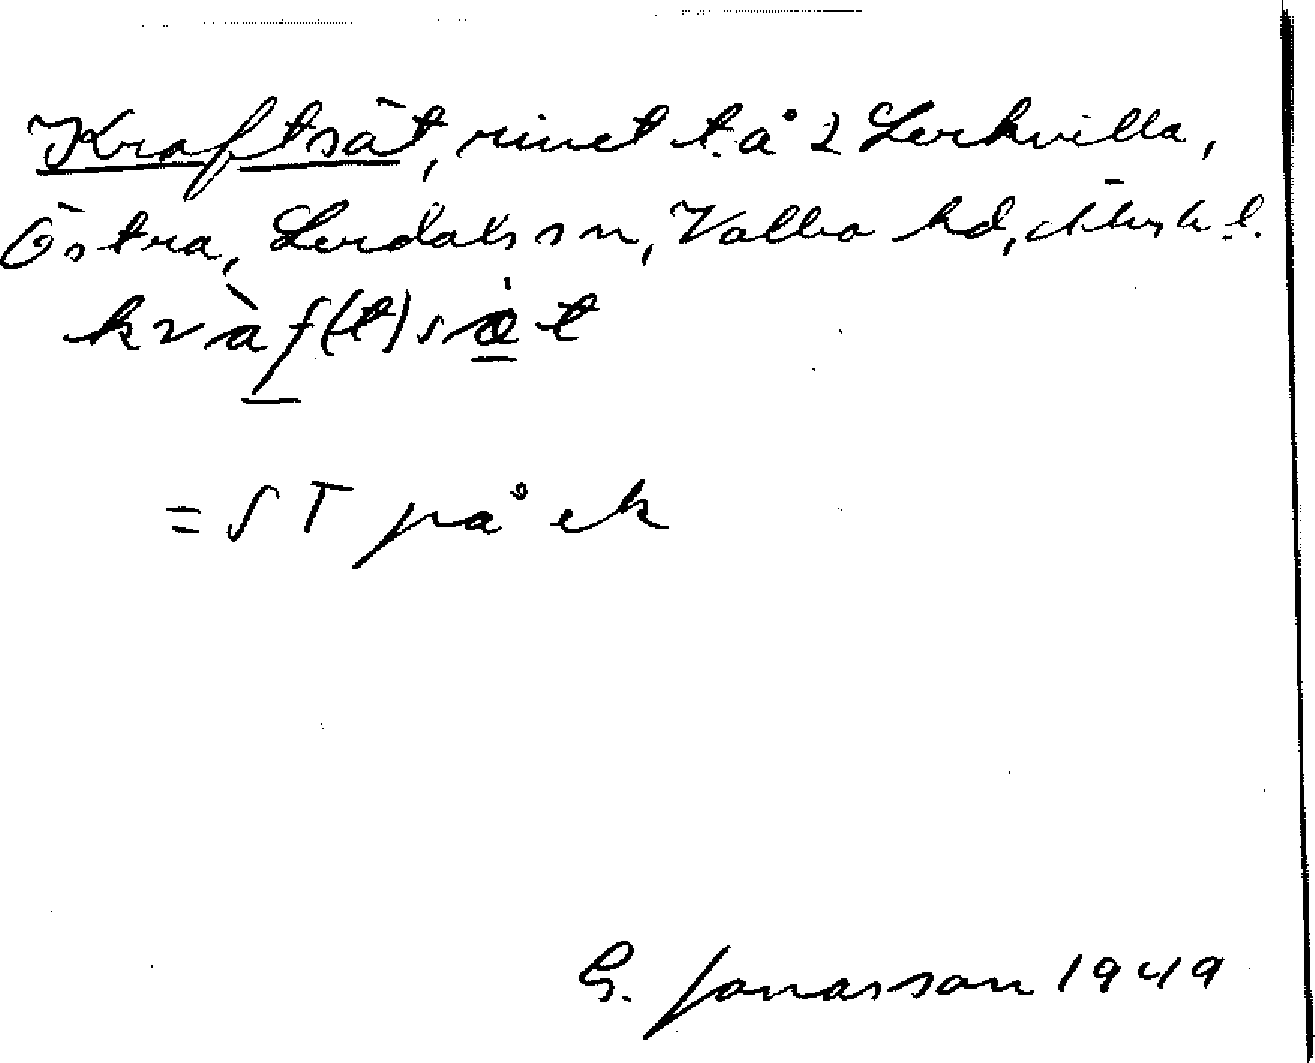 Kraftsät, rivet t. å 2 Lerkvilla,
Östra, Lerdals sn, Valbo hd, Älvsb. l.
kràf(t)sæt
= ST på ek
G. Jonasson 1949